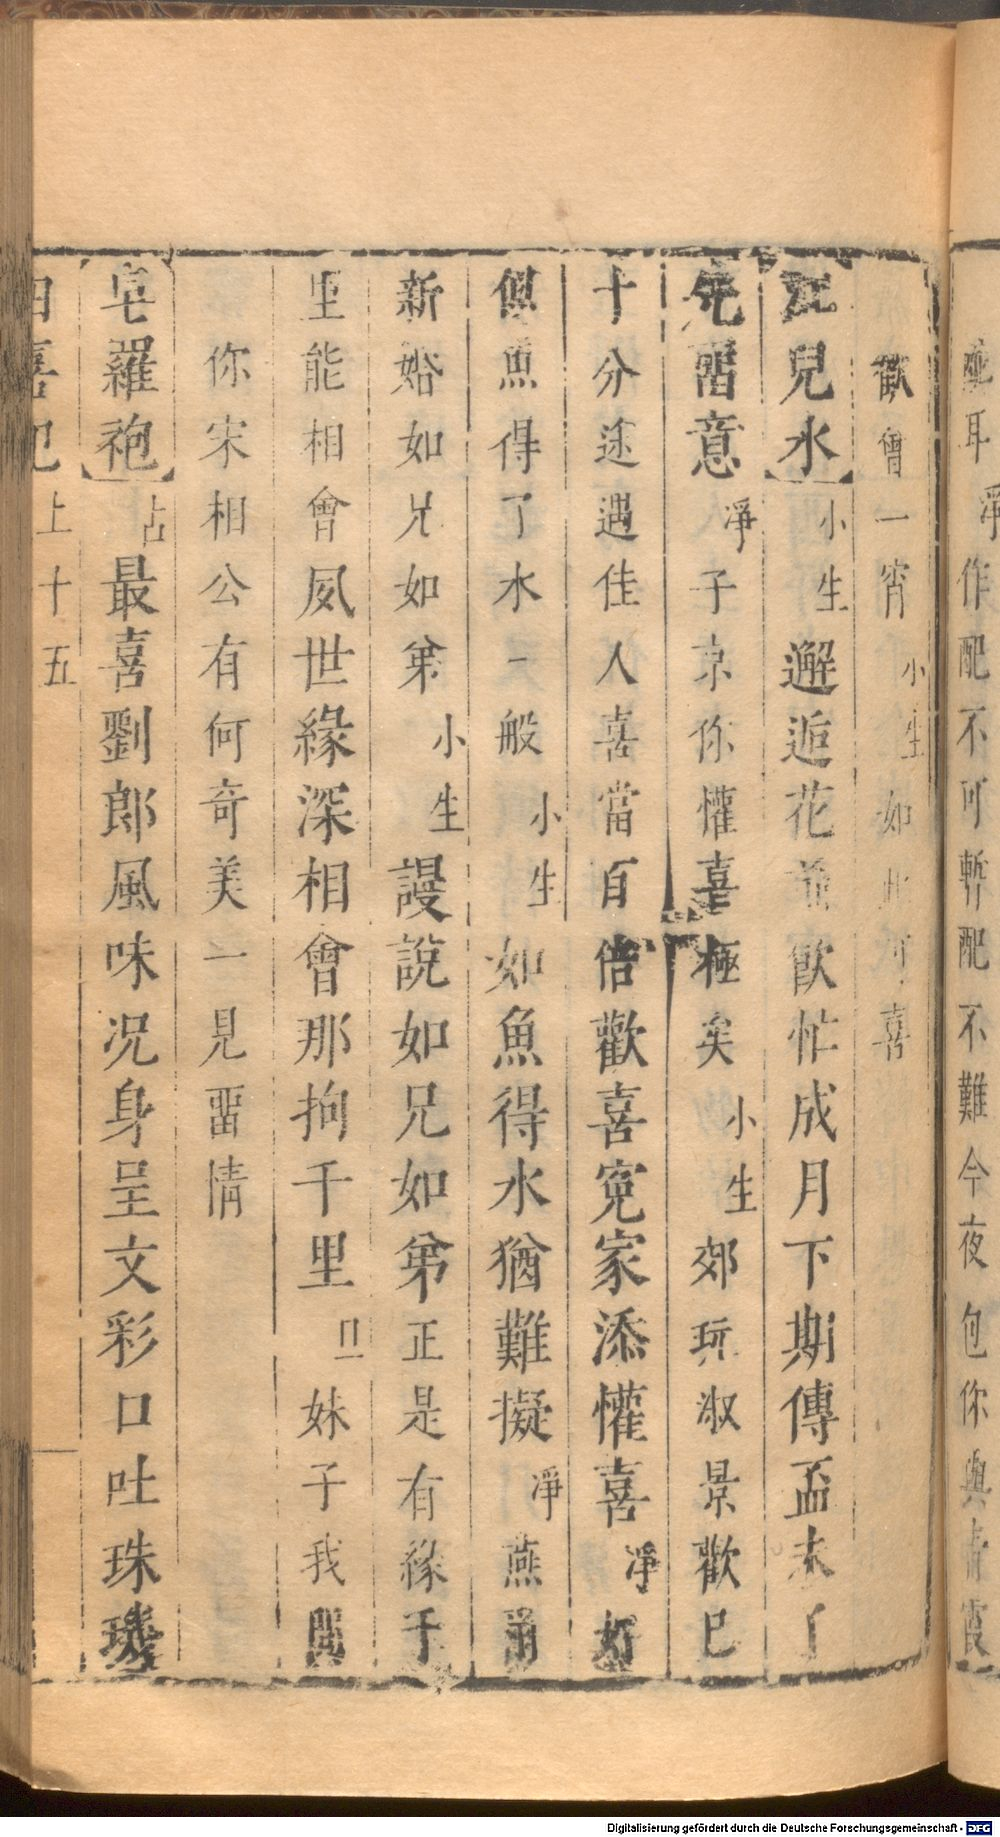 耳淨作配不可暫配不難今夜包你與
歡會一宵小生如此可喜
江兒水小生邂逅花前歡忙成月下期傳盃未了
先留意淨子京你懽喜極矣小生郊玩淑景歡已
十分途遇佳人喜當百倍歡喜寃家添懽喜淨好
似魚得了水一般小生如魚得水猶難擬淨燕爾
新婚如兄如弟小生謾說如兄如弟正是有緣千
里能相會夙世緣深相會那拘千里旦妹子我聞
你宋相公有何奇美一見畱情
皂羅袍占最喜劉郎風味况身呈文彩口吐珠璣
四喜記上十五
Digitalisierung gefördert durch die Deutsche Forschungsgemeinschaft - DFG